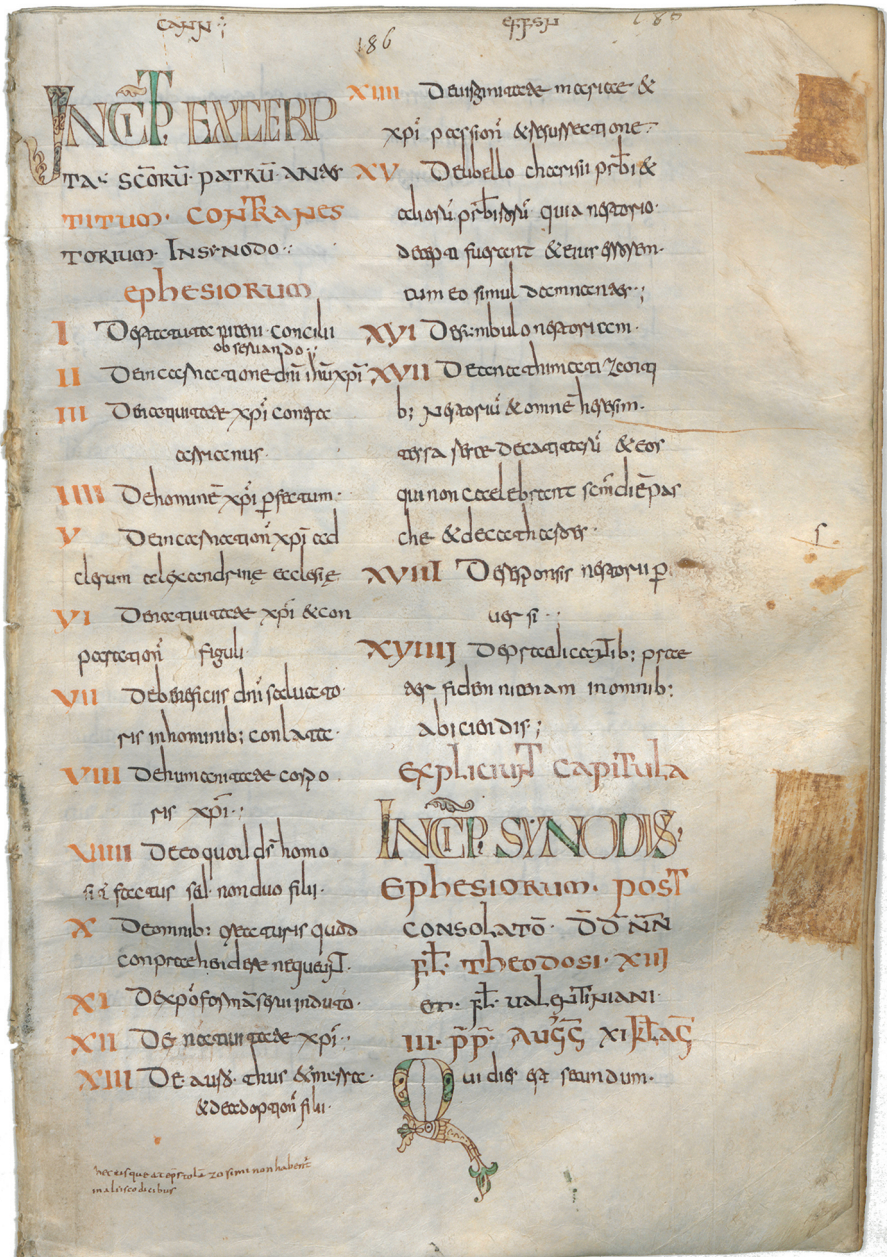 CANN:
EFFSN
186
INCIPT. EXCERP
TA SCŌRŪ· PATRŪ· ANAE
TITUM· CONTRA NES
TORIUM· IN SYNODO·:
EPHESIORUM
I De statuta niceni concilii
observando·:
II De incarnatione dn̄i ihū xp̄i
III De nativitate xp̄i contra
arrianus·
IIII De hominē xp̄i perfectum·
V De incarnation̄ xp̄i ad
clerum alexandrinę ecclesię
VI De nativitate xp̄i & con
paration̄ figuli·
VII De beneficiis dn̄i salvato·
ris in hominib; conlata·
VIII De humanitate corpo
ris xp̄i·:
VIIII De eo quod d̄s homo
sit factus sed non duo filii·
X De omnib: creaturis quod
conprachendere nequeunt·
XI De xp̄o formā servi induto·
XII De nativitate xp̄i··
XIII De auro· thus & mirra·
& de adoption̄ filii·
hec usque at ep̄stolā zosimi non habent
in aliis codicibus
XIIII De virginitate maria &
xp̄i passion̄ & resurrectione:
XV De libello charisii pr̄bi &
aliorū pr̄biterū quia nestorio·
decepti fuerant & eius errorem·
cum eo simul damnantes·;
XVI De simbulo nestoriacum·
XVII De anathimatizanti
b; nestoriū & omnē heresim·
terra serta decatitarū & eos
qui non celebrent sc̄m diē pas
che & de catheres·
XVIII De responsis nestorii p
versi··
XVIIII De predicantib; prae
ter fidem nicenam in omnib:
abiciendis;
EXPLICIUNT CAPITULA
INCIP. SYNODUS·
EPHESIORUM· POST
CONSOLATŌ· D̄D̄ N̄N̄
FL̄· THEODOSI· XIII
ET· FL̄· VALENTINIANI
III· P̄P̄· AUGG̅ XI KL̄ AG̅
Qui dies est secundum·